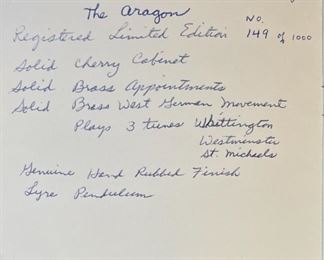 The Aragon
NO.
Registered Limited Edition 149 of 1000
Solid Cherry Cabinet
Solid Brass Appointments
Solid Brass West German Movement
Plays 3 tunes Whittington
Westminster
St. Michaels
Genuine Hand Rubbed Finish
Lyre Pendulum